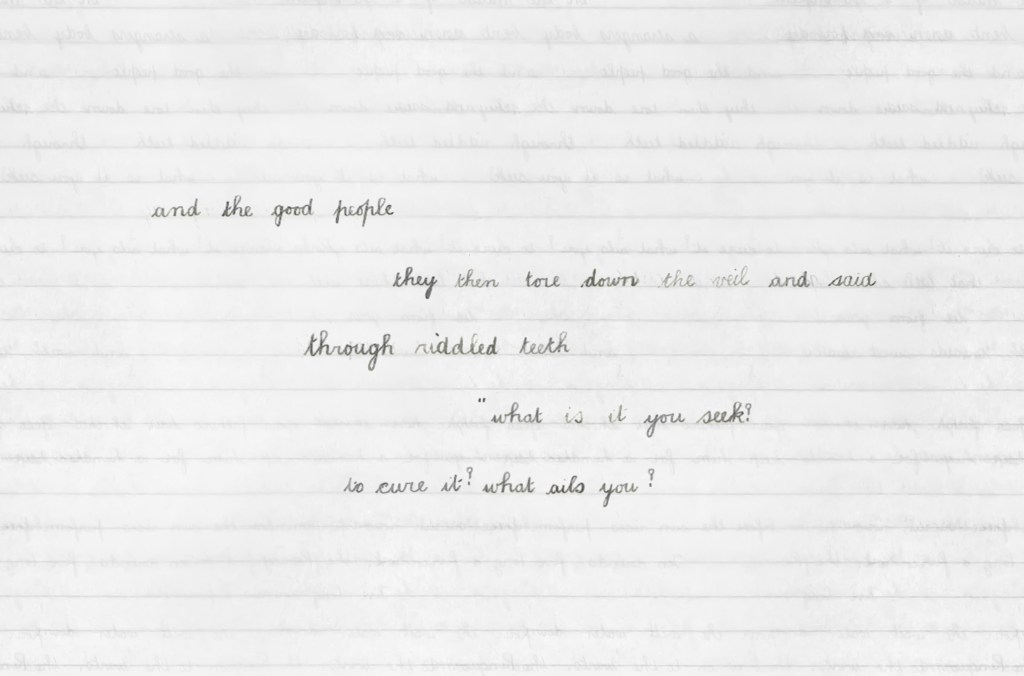 and the good people
they then tore down the veil and said
through riddled teeth
"what is it you seek?
to cure it? what ails you?